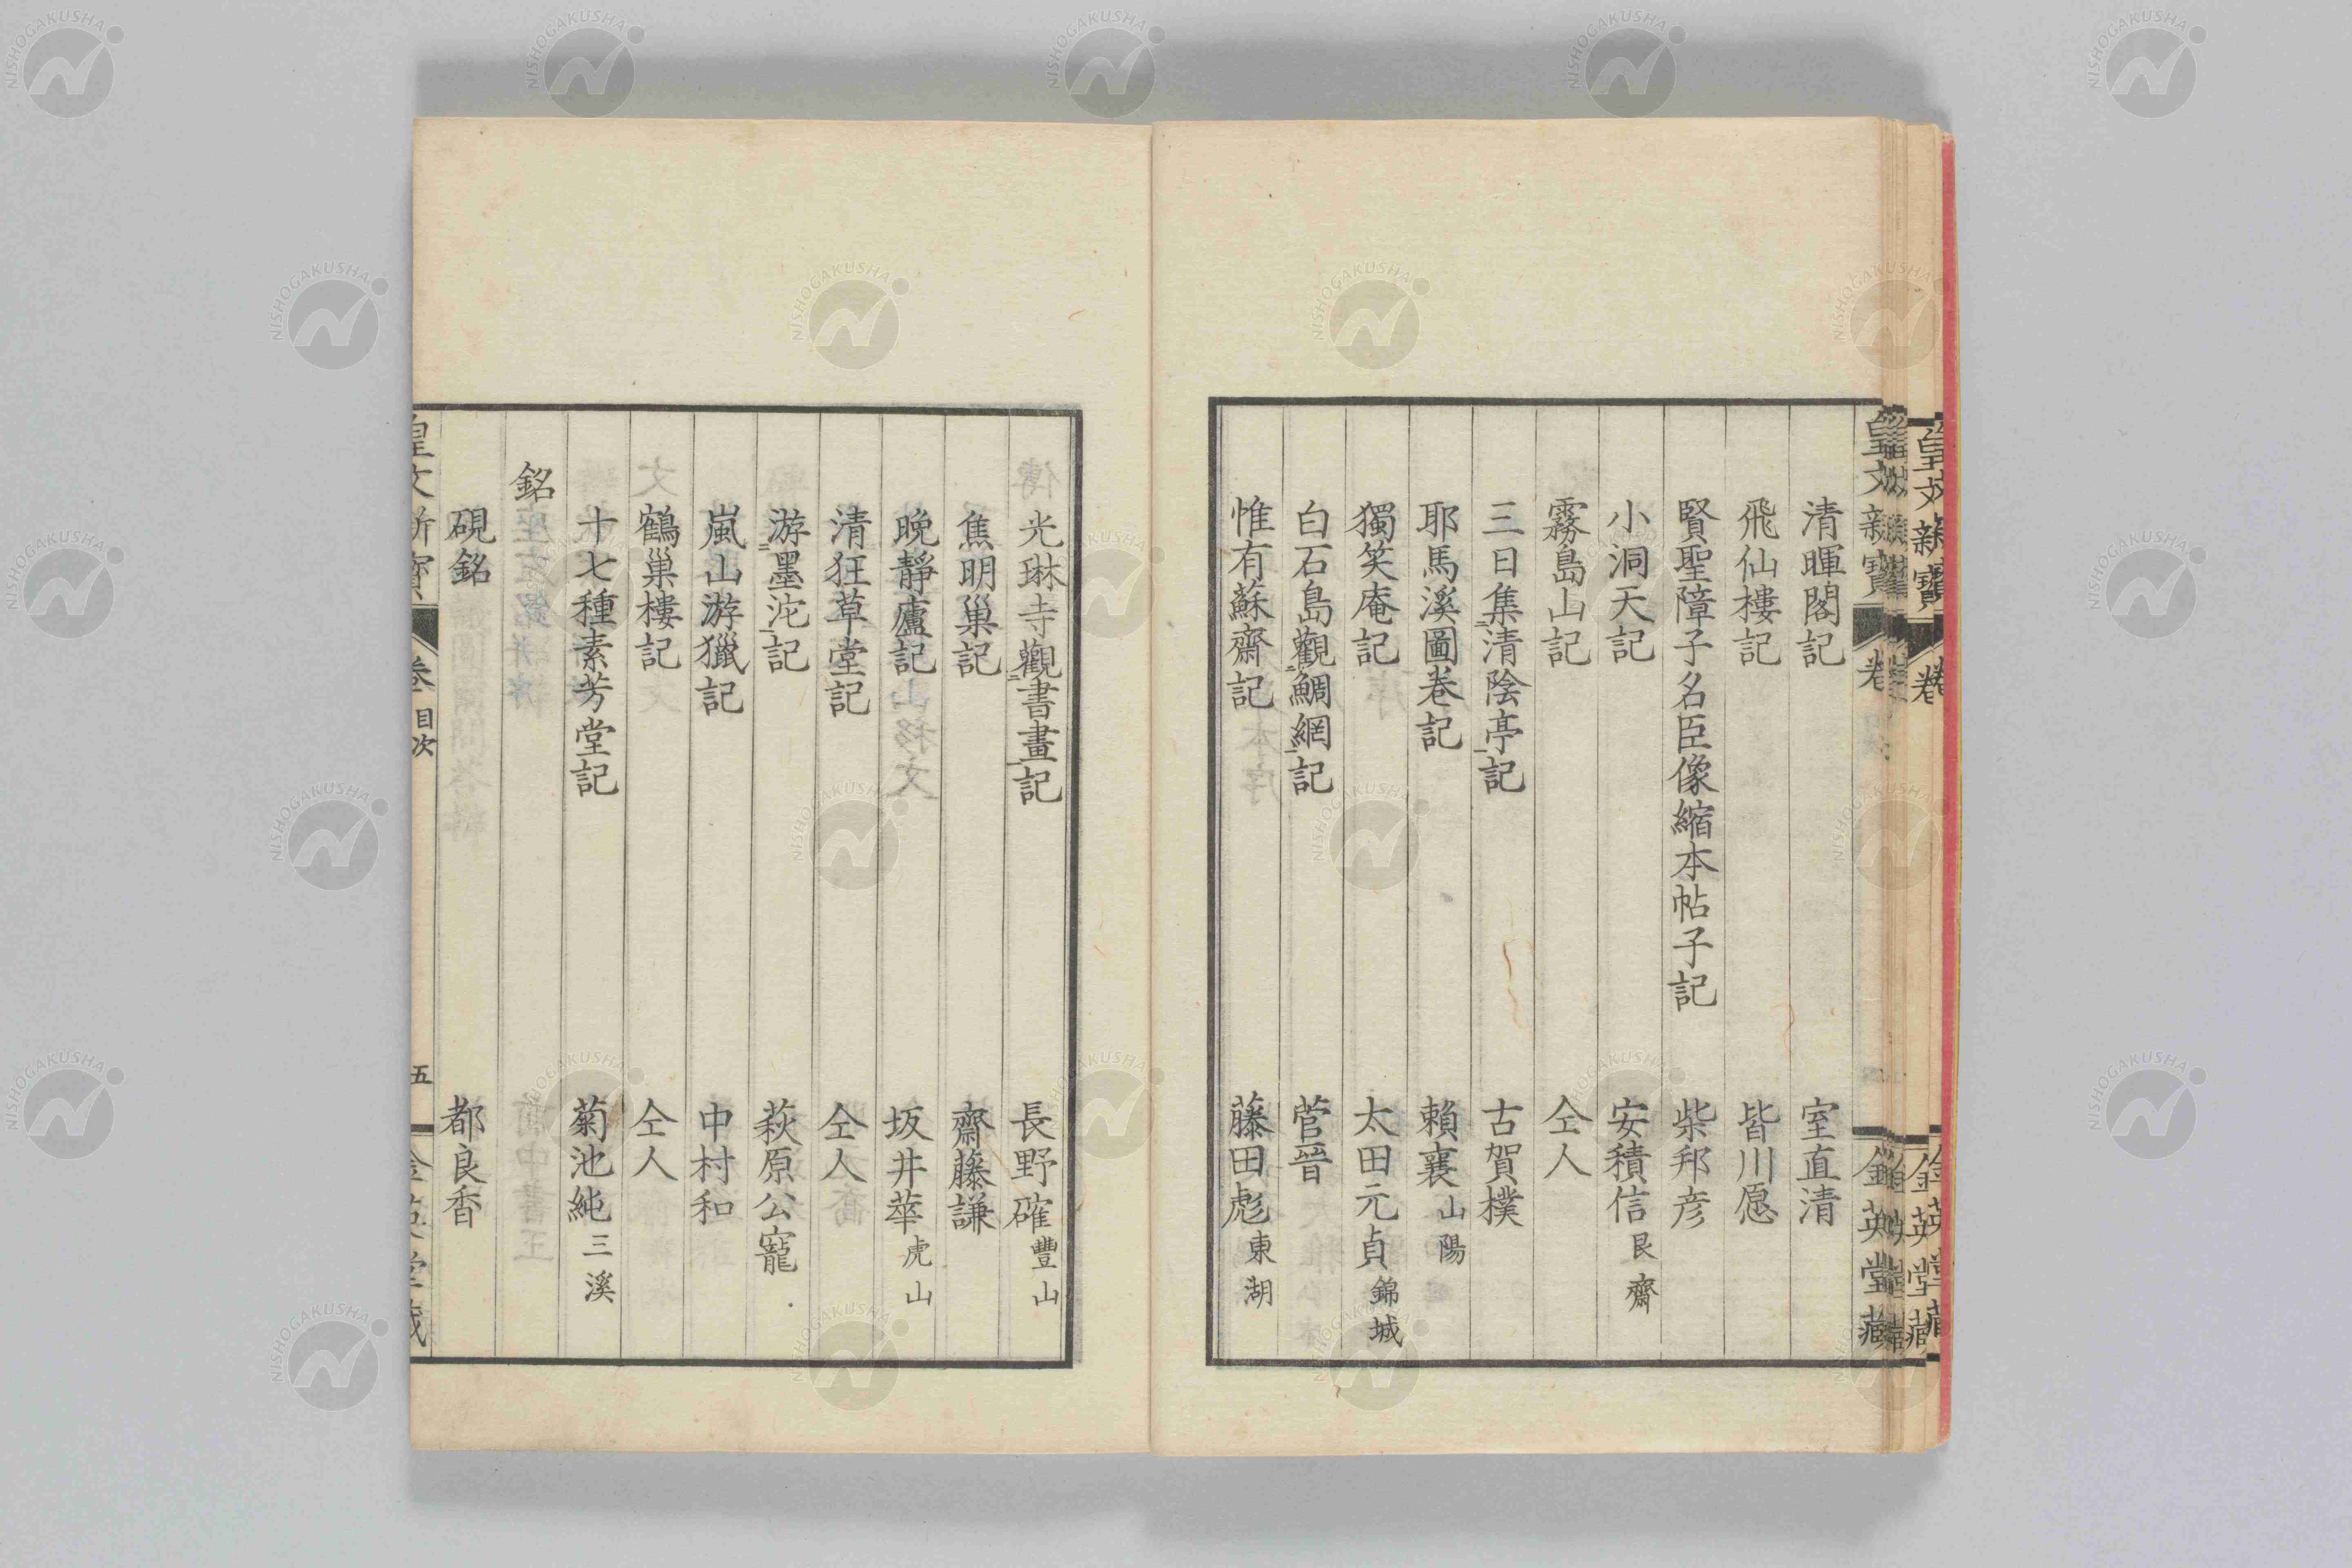 清暉閣記 室直清
飛仙樓記 皆川愿
賢聖障子名臣像縮本帖子記 柴邦彦
小洞天記 安積信 艮齋
霧島山記 仝人
三日集清陰亭記 古賀樸
耶馬溪圖卷記 賴襄 山陽
獨笑庵記 太田元貞 錦城
白石島觀鯛網記 菅晉
惟有蘇齋記 藤田彪 東湖
光琳寺觀書畫記 長野確 豐山
焦明巢記 齋藤謙
晚靜廬記 坂井華 虎山
清狂草堂記 仝人
游墨沱記 萩原公寵
嵐山游獵記 中村和
鶴巢樓記 仝人
十七種素芳堂記 菊池純 三溪
銘
硯銘 都良香
皇文新寶 卷 目次 五 金英堂藏
皇文新寶 卷 金英堂藏
NISHOGAKUSHA